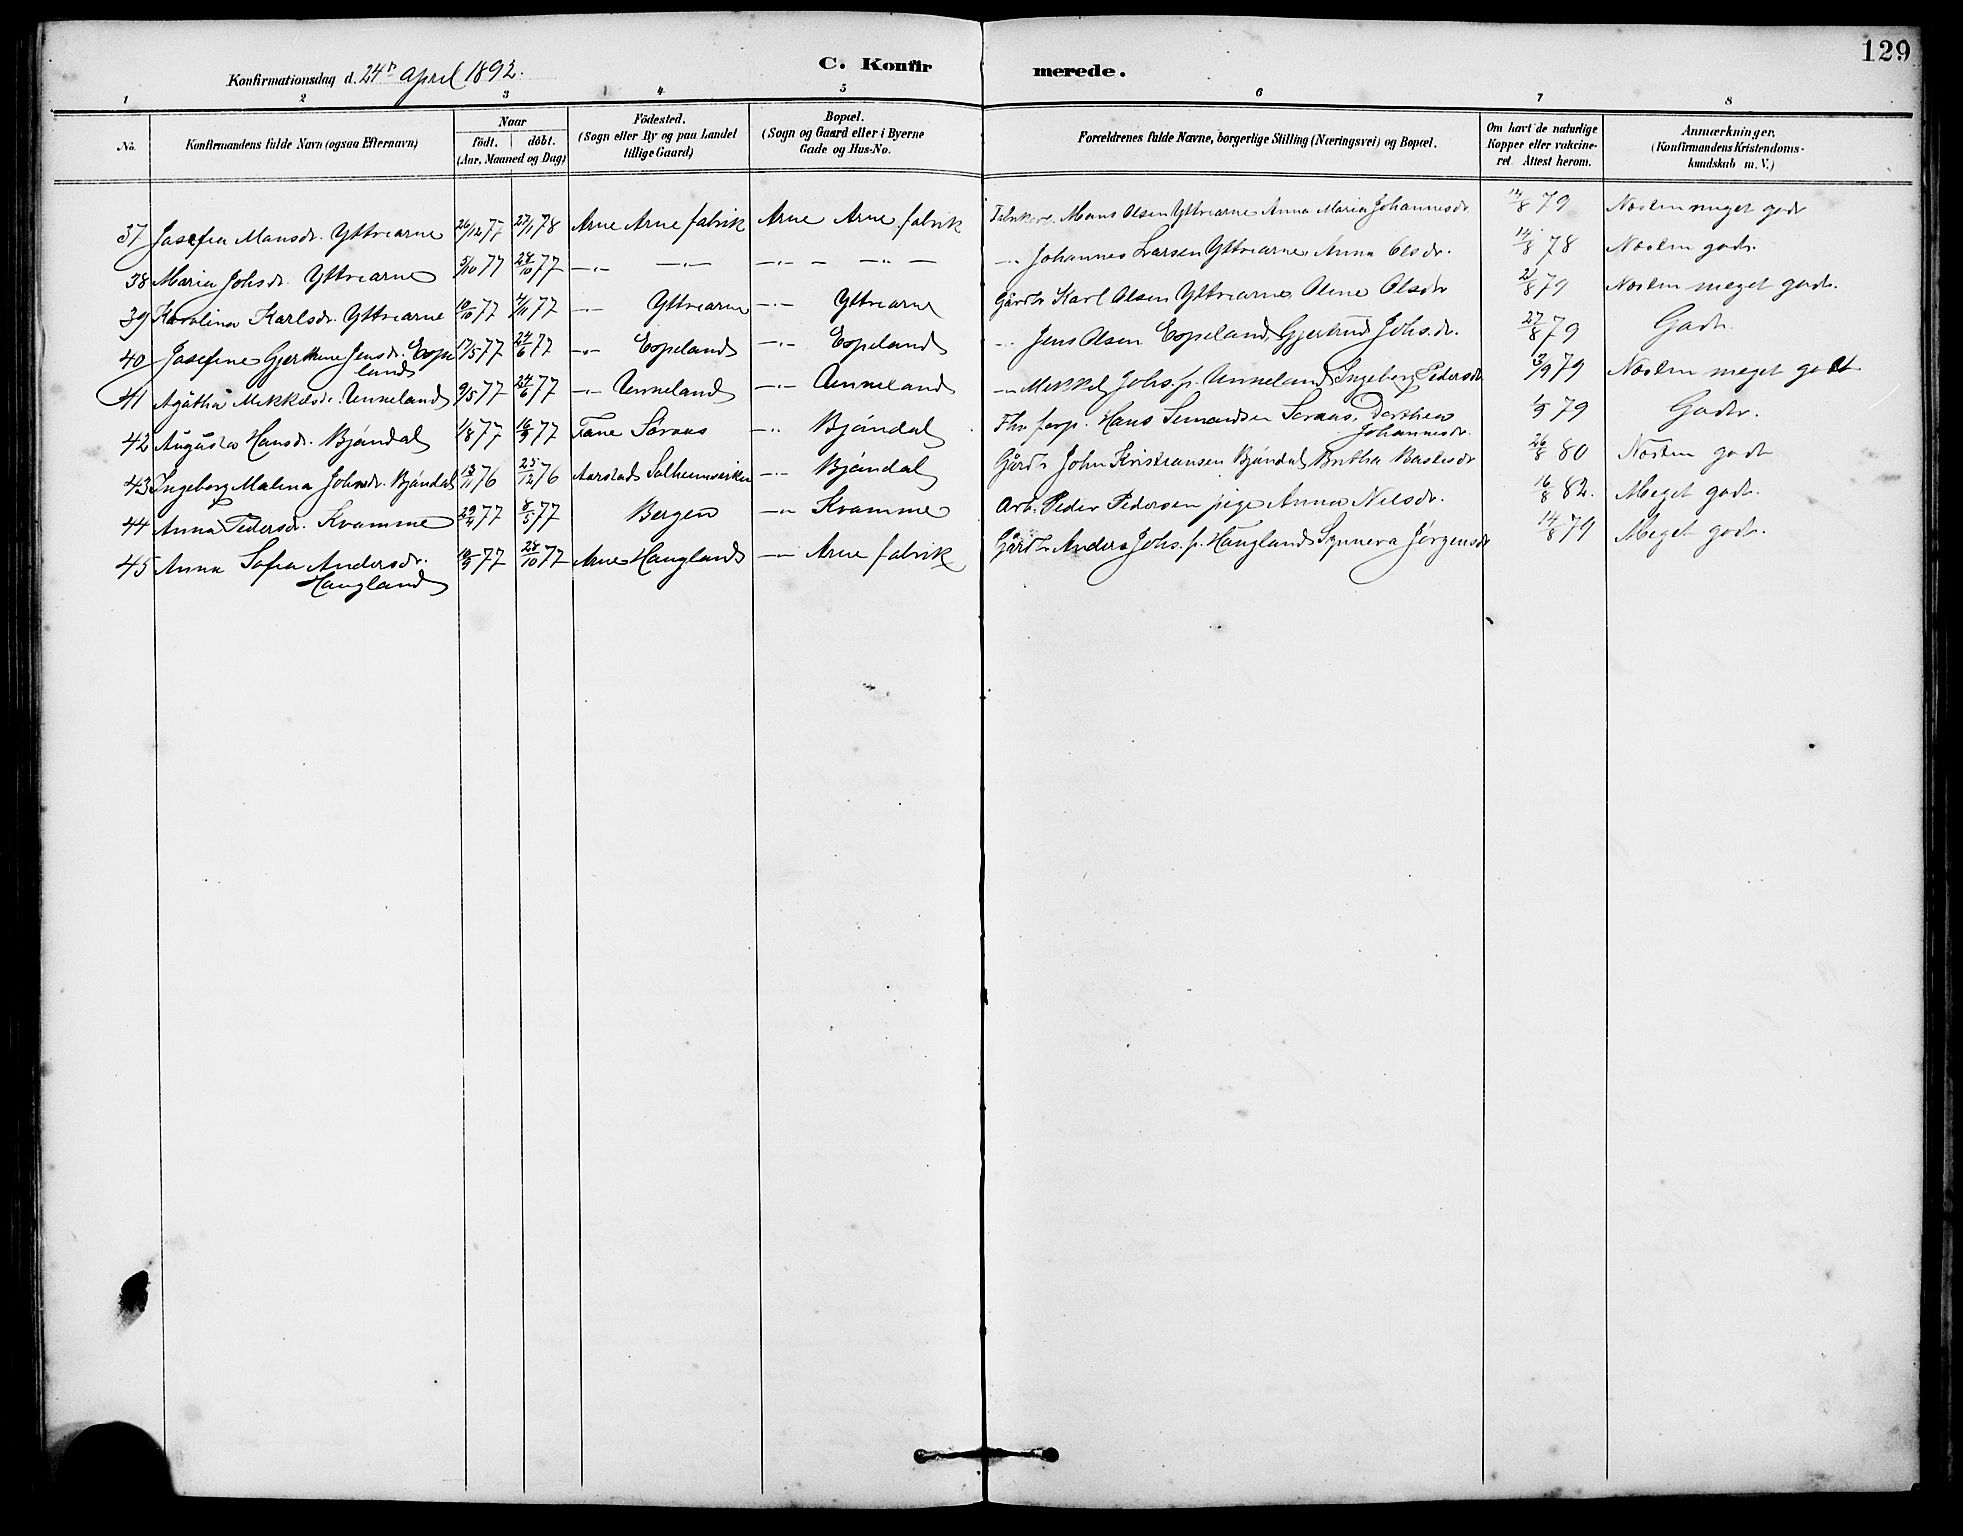 129
Konfirmationsdag d. 24de April 1892.
C. Konfir merede.
1 2 3 4 5 6 7 8
No.
Konfirmandens fulde Navn (ogsaa Efternavn)
Naar
födt. döbt.
(Aar, Maaned og Dag)
Födested.
(Sogn eller By og paa Landet
tillige Gaard)
Bopæl.
(Sogn og Gaard eller i Byerne
Gade og Hus-No.
Forældrenes fulde Navne, borgerlige Stilling (Næringsvei) og Bopæl.
Om havt de naturlige
Kopper eller vakcine-
ret. Attest herom.
Anmærkninger,
(Konfirmandens Kristendoms-
kundskab m. V.)
37 Josefia Monsdr. Yttrearne 26/12 77 27/1 78 Arne Arne fabrik Arne Arne fabrik Mons Olsen Yttrearne Anna Maria Johannesdr 14/8 79 Næsten meget godt
38 Maria Johsdr. Yttrearne 5/10 77 28/10 77 —"— —"— —"— —"— —"— Johannes Larsen Yttrearne, Anna Olsdr. 14/8 78 Næsten godt.
39 Karolina Karlsdr. Yttrearne 10/10 77 4/11 77 —"— Yttrearne —"— Yttrearne Gårdbr Karl Olsen Yttrearne, Oline Olsdr 2/8 79 Næsten meget godt.
40 Josefine Gjertine Jensdr. Espe
land 17/5 77 24/6 77 —"— Espeland —"— Espeland —"— Jens Olsen Espeland, Gjertrud Johs.dr. 27/8 79 Godt.
41 Agåtha Mikkelsdr. Unneland 9/5 77 24/6 77 —"— Unneland —"— Unneland —"— Mikkel Johs. p. Unneland Ingeborg Pedersdr 3/9 79 Næsten meget godt
42 Augusta Hansdr. Bjöndal 1/8 77 16/9 77 Fane Söraas —"— Bjöndal Hans Simonsen Söraas, Dorthea
Johannesdr. 1/9 79 Godt.
43 Ingeborg Malena Johndr. Bjöndal 13/11 76 25/12 76 Aarstad Solheimsviken —"— Bjöndal Gårdbr John Kristiansen Bjöndal Britha 26/8 80 Næsten godt
44 Anna Pedersdr. Kvamme 29/4 77 8/5 77 Bergen —"— Kvamme Arb. Peder Pedersen pige Anna Nilsdr. 16/8 82. Meget godt.
45 Anna Sofia Andersdr.
Haugland 16/9 77 28/10 77 Arne Haugland —"— Arne fabrik Gårdbr Anders Johs. p. Haugland Synneva Jörgensdr 14/8 79 Meget godt.